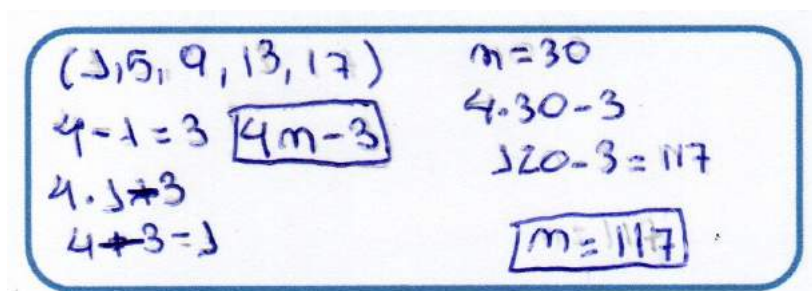 (1,5,9,13,17)
4-1=3 4n-3
4.1-3
4-3=1
n=30
4.30-3
120-3=117
n=117